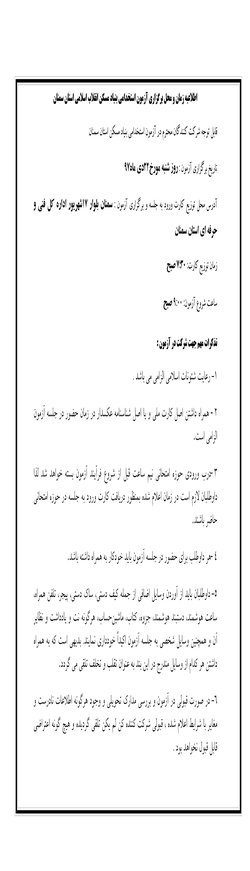 اطلاعیه زمان و محل برگزاری آزمون استخدامی بنیاد مسکن انقلاب اسلامی استان سمنان
قابل توجه شرکت کنندگان محترم در آزمون استخدامی بنیاد مسکن استان سمنان
تاریخ برگزاری آزمون : روز شنبه مورخ ۲۲دی ماه ۹۷
آدرس محل توزیع کارت ورود به جلسه و برگزاری آزمون : سمنان بلوار ۱۷شهریور اداره کل فنی و
حرفه ای استان سمنان
زمان توزیع کارت: ۷:۳۰ صبح
ساعت شروع آزمون: ۹:۰۰ صبح
تذکرات مهم جهت شرکت در آزمون :
۱- رعایت شئونات اسلامی الزامی می باشد .
۲- همراه داشتن اصل کارت ملی و یا اصل شناسنامه عکسدار در زمان حضور در جلسه آزمون
الزامی است.
۳-درب ورودی حوزه امتحانی نیم ساعت قبل از شروع فرآیند آزمون بسته خواهد شد لذا
داوطلبان لازم است در زمان اعلام شده بمنظور دریافت کارت ورود به جلسه در حوزه امتحانی
حاضر باشند.
۴-هر داوطلب برای حضور در جلسه آزمون باید خودکار به همراه داشته باشد.
۵- داوطلبان باید از آوردن وسایل اضافی از جمله کیف دستی، ساک دستی، پیجر، تلفن همراه،
ساعت هوشمند، دستبند هوشمند، جزوه، کتاب، ماشین حساب، هرگونه نت و یادداشت و نظایر
آن و همچنین وسایل شخصی به جلسه آزمون اکیداً خودداری نمایند. بدیهی است که به همراه
داشتن هر کدام از وسایل مندرج در این بند به عنوان تقلب و تخلف تلقی می گردد.
۶- در صورت قبولی در آزمون و بررسی مدارک تحویلی و وجود هرگونه اطلاعات نادرست و
مغایر با شرایط اعلام شده ، قبولی شرکت کننده کن لم یکن تلقی گردیده و هیچ گونه اعتراضی
قابل قبول نخواهد بود .